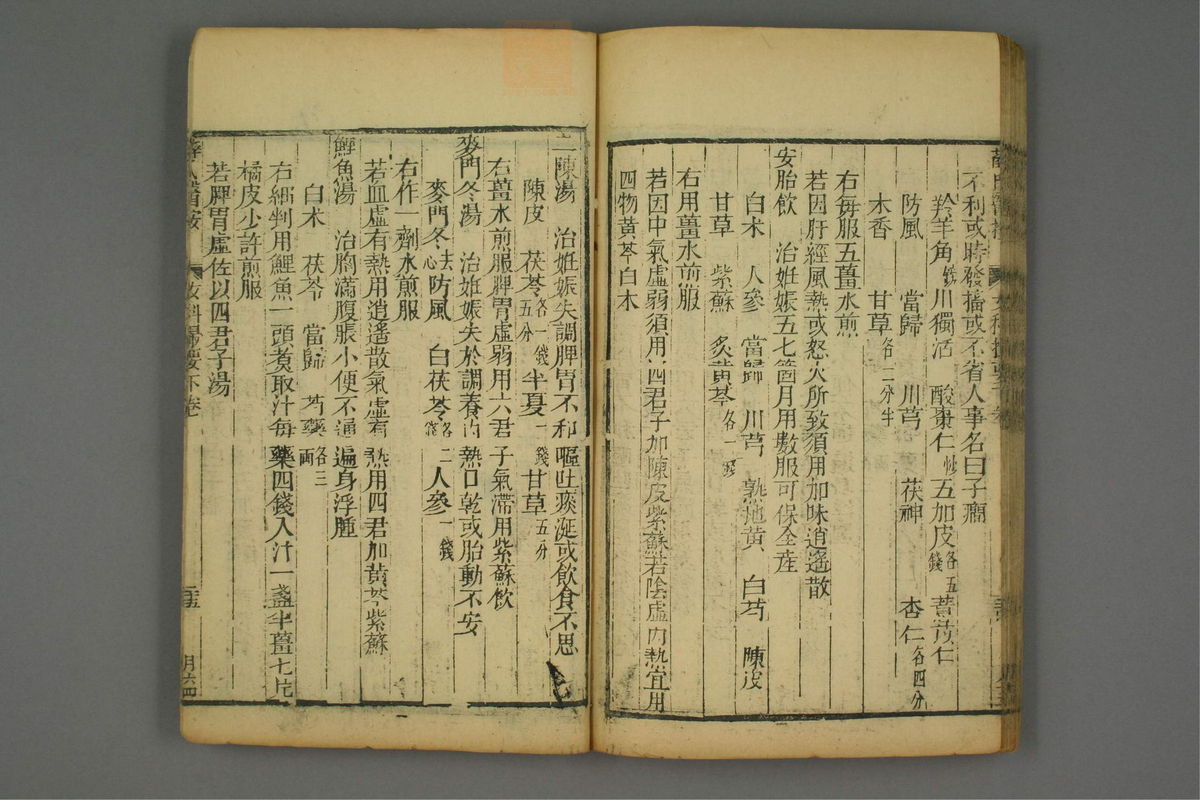 不利或時發搐或不省人事名曰子癇
羚羊角鎊川獨活 酸棗仁炒五加皮各五錢薏苡仁
防風 當歸 川芎 茯神 杏仁各四分
木香 甘草各二分半
右每服五薑水煎
若因肝經風熱或怒火所致須用加味逍遙散
安胎飲 治姙娠五七箇月用數服可保全產
白朮 人參 當歸 川芎 熟地黃 白芍 陳皮
甘草 紫蘇 炙黃芩各一錢
右用薑水煎服
若因中氣虛弱須用四君子加陳皮紫蘇若陰虛內熱宜用
四物黃芩白朮
二陳湯 治姙娠失調脾胃不和嘔吐痰涎或飲食不思
陳皮 茯苓各一錢五分半夏一錢甘草五分
右薑水煎服脾胃虛弱用六君子氣滯用紫蘇飲
麥門冬湯 治姙娠失於調養內熱口乾或胎動不安
麥門冬去心防風 白茯苓各二錢人參一錢
右作一劑水煎服
若血虛有熱用逍遙散氣虛有熱用四君加黃芩紫蘇
鯉魚湯 治胸滿腹脹小便不通遍身浮腫
白朮 茯苓 當歸 芍藥各三兩
右細剉用鯉魚一頭煑取汁每藥四錢入汁一盞半薑七片
橘皮少許煎服
若脾胃虛佐以四君子湯